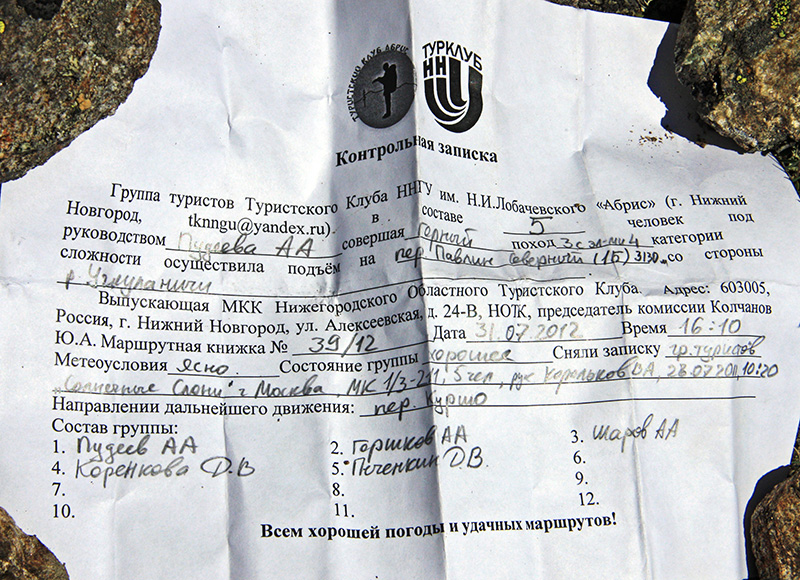 ТУРИСТСКИЙ КЛУБ АБРИС
ТУРКЛУБ
ННГУ
Контрольная записка
Группа туристов Туристского Клуба ННГУ им. Н.И.Лобачевского «Абрис» (г. Нижний
Новгород, tknngu@yandex.ru). в составе 5 человек под
руководством Пудеева АА совершая горный поход 3 с эл-ми 4 категории
сложности осуществила подъём на пер. Павлин Северный (1Б) 3130 со стороны
р.
Выпускающая МКК Нижегородского Областного Туристского Клуба. Адрес: 603005,
Россия, г. Нижний Новгород, ул. Алексеевская, д. 24-В, НОТК, председатель комиссии Колчанов
Ю.А. Маршрутная книжка № 39/12 Дата 31.07.2012 Время 16:10
Метеоусловия Ясно. Состояние группы хорошее Сняли записку гр. туристов
"Солнечные Слоны" г Москва, МК 1/3-211, 5 чел, рук Корольков ВА, 10:20
Направлении дальнейшего движения: пер. Куршо
Состав группы:
1. Пудеев АА 2. Горшков АА 3. Шаров АА
4. Коренкова Д.В 5. Пченкин Д.В. 6.
7. 8. 9.
10. 11. 12.
Всем хорошей погоды и удачных маршрутов!